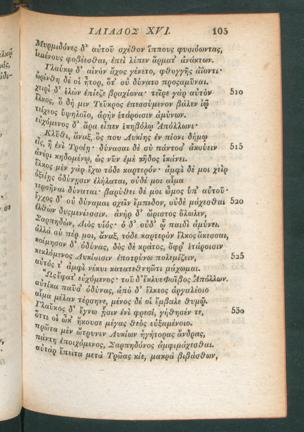 ΙΛΙΑΔΟΣ XVI. 105
Μυρμιδόνες δ' αὐτοῦ σχέθον ἵππους φυσιόωντας,
ἱεμένους φοβέεσθαι, ἐπεὶ λίπεν ἅρματ' ἀνάκτων.
Γλαύκῳ δ' αἰνὸν ἄχος γένετο, φθογγῆς ἀΐοντι·
ὠρίνθη δέ οἱ ἦτορ, ὅτ' οὐ δύνατο προσαμῦναι.
χειρὶ δ' ἑλὼν ἐπίεζε βραχίονα· τεῖρε γὰρ αὐτὸν 510
ἕλκος, ὃ δή μιν Τεῦκρος ἐπεσσύμενον βάλεν ἰῷ
τείχεος ὑψηλοῖο, ἀρὴν ἑτάροισιν ἀμύνων.
εὐχόμενος δ' ἄρα εἶπεν ἑκηβόλῳ Ἀπόλλωνι·
Κλῦθι, ἄναξ, ὅς που Λυκίης ἐν πίονι δήμῳ
εἲς, ἢ ἐνὶ Τροίῃ· δύνασαι δὲ σὺ πάντοσ' ἀκούειν 515
ἀνέρι κηδομένῳ, ὡς νῦν ἐμὲ κῆδος ἱκάνει.
ἕλκος μὲν γὰρ ἔχω τόδε καρτερόν· ἀμφὶ δέ μοι χεὶρ
ὀξείῃς ὀδύνῃσιν ἐλήλαται, οὐδέ μοι αἷμα
τερσῆναι δύναται· βαρύθει δέ μοι ὦμος ὑπ' αὐτοῦ·
ἔγχος δ' οὐ δύναμαι σχεῖν ἔμπεδον, οὐδὲ μάχεσθαι 520
ἐλθὼν δυσμενέεσσιν. ἀνὴρ δ' ὤριστος ὄλωλεν,
Σαρπηδὼν, Διὸς υἱός· ὁ δ' οὐδ' ᾧ παιδὶ ἀμύνει.
ἀλλὰ σύ πέρ μοι, ἄναξ, τόδε καρτερὸν ἕλκος ἄκεσσαι,
κοίμησον δ' ὀδύνας, δὸς δὲ κράτος, ὄφρ' ἑτάροισιν
κεκλόμενος Λυκίοισιν ἐποτρύνω πολεμίζειν, 525
αὐτός τ' ἀμφὶ νέκυι κατατεθνηῶτι μάχωμαι.
Ὣς ἔφατ' εὐχόμενος· τοῦ δ' ἔκλυε Φοῖβος Ἀπόλλων.
αὐτίκα παῦσ' ὀδύνας, ἀπὸ δ' ἕλκεος ἀργαλέοιο
αἷμα μέλαν τέρσηνε, μένος δέ οἱ ἔμβαλε θυμῷ.
Γλαῦκος δ' ἔγνω ᾗσιν ἐνὶ φρεσὶ, γήθησέν τε, 530
ὅττι οἱ ὦκ' ἤκουσε μέγας θεὸς εὐξαμένοιο.
πρῶτα μὲν ὤτρυνεν Λυκίων ἡγήτορας ἄνδρας,
πάντη ἐποιχόμενος, Σαρπηδόνος ἀμφιμάχεσθαι.
αὐτὰρ ἔπειτα μετὰ Τρῶας κίε, μακρὰ βιβάσθων,